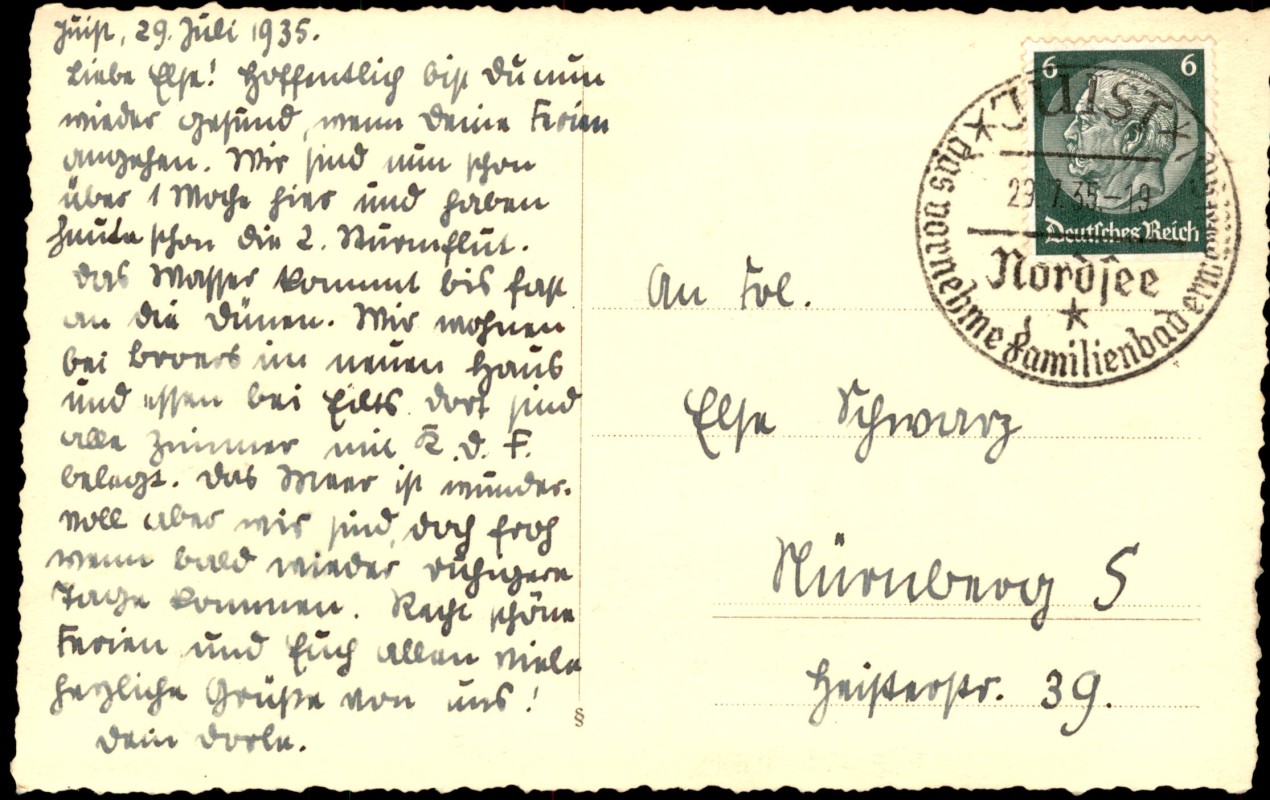 Juist, 29. Juli 1935.
Liebe Else! Hoffentlich bist Du nun
wieder gesund, wenn Deine Ferien
angehen. Wir sind nun schon
über 1 Woche hier und haben
heute schon die 2. Sturmflut.
Das Wasser kommt bis fast
an die Dünen. Wir wohnen
bei Broers im neuen Haus
und essen bei Eilts. Dort sind
alle Zimmer mit K.d.F.
belegt. Das Meer ist wunder-
voll aber wir sind doch froh
wenn bald wieder ruhigere
Tage kommen. Recht schöne
Ferien und Euch allen viele
herzliche Grüße von uns!
Dein Dorle.
§
6 6
Deutsches Reich
JUIST
29.7.35.-19
Nordsee
das vornehme Familienbad
An Frl.
Else Schwarz
Nürnberg S
Heisterstr. 39.